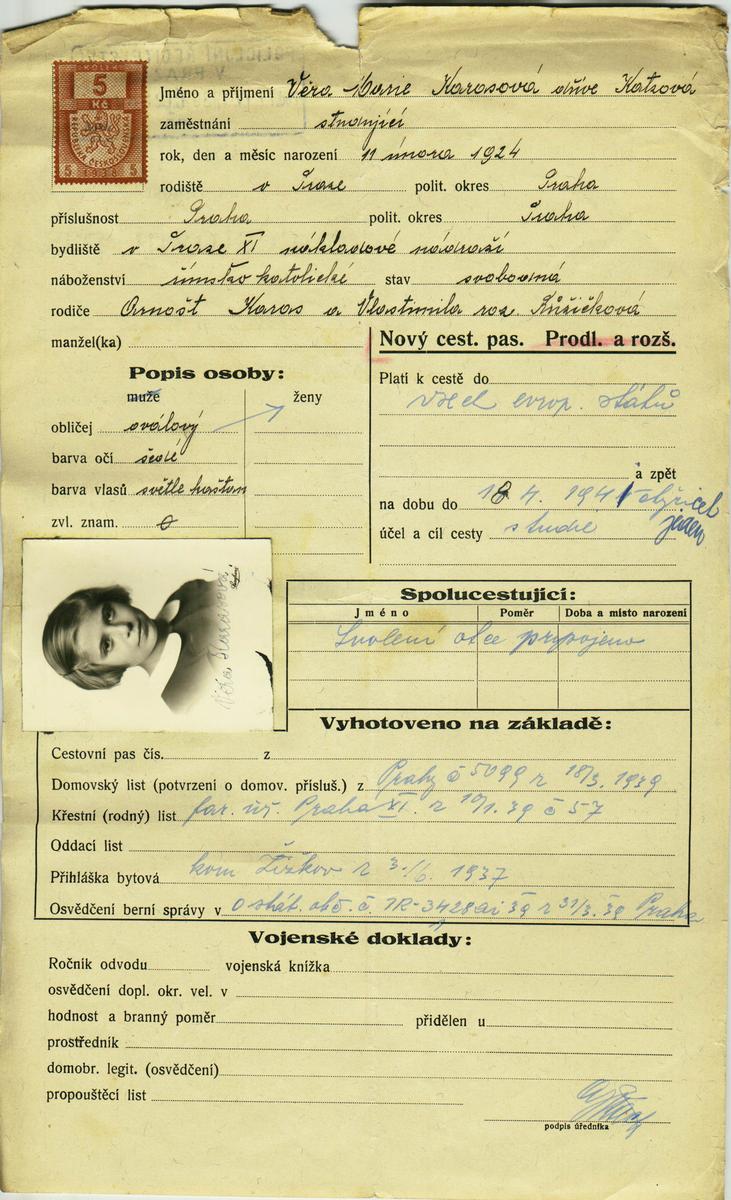 KOLEK
5
Kč
REPUBLIKA ČESKOSLOVENSKÁ
5 1938 5
Jméno a příjmení Věra Marie Karasová dříve Katzová
zaměstnání studující
rok, den a měsíc narození 11 února 1924
rodiště v Praze polit. okres Praha
příslušnost Praha polit. okres Praha
bydliště v Praze XI nákladové nádraží
náboženství římsko katolické stav svobodná
rodiče Arnošt Karas a Vlastimila roz. Růžičková
manžel(ka)
Nový cest. pas. Prodl. a rozš.
Popis osoby:
muže ženy
obličej oválový
barva očí šedé
barva vlasů světle kaštan
zvl. znam. 0
Platí k cestě do
všech evrop. států
a zpět
na dobu do 18 4. 1941 čtyřicet
jeden
účel a cíl cesty studie
Věra Karasová
Spolucestující:
Jméno Poměr Doba a místo narození
Svolení otce připojeno
Vyhotoveno na základě:
Cestovní pas čís. z
Domovský list (potvrzení o domov. přísluš.) z Prahy č 5099 z 18/3. 1939
Křestní (rodný) list far. úř. Praha XI. z 19/1. 39 č 57
Oddací list
Přihláška bytová kom Žižkov z 3./6. 1937
Osvědčení berní správy v O stát. obč. č. IR-3428 ai 39 z 31/3. 39 Praha
Vojenské doklady:
Ročník odvodu vojenská knížka
osvědčení dopl. okr. vel. v
hodnost a branný poměr přidělen u
prostředník
domobr. legit. (osvědčení)
propouštěcí list
podpis úředníka